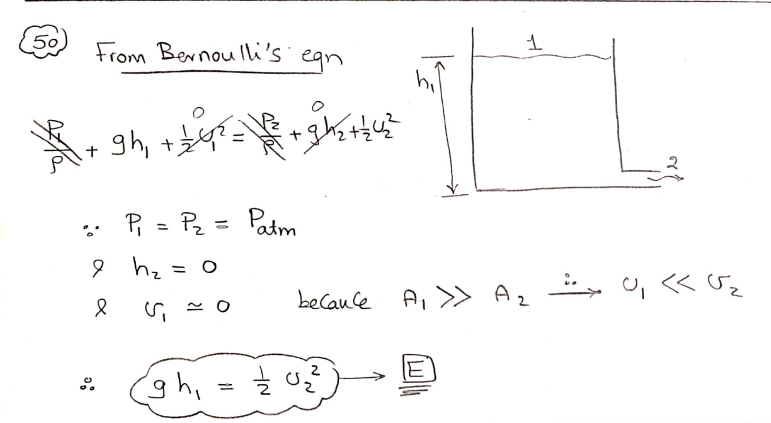 50 From Bernoulli's eqn
1
h₁
P₁/ρ + gh₁ + ½υ₁² = P₂/ρ + gh₂ + ½υ₂²
0 0
2
∵ P₁ = P₂ = Patm
& h₂ = 0
& υ₁ ≃ 0 becauce A₁ >> A₂ ∴→ υ₁ << υ₂
∴ gh₁ = ½ υ₂² → E